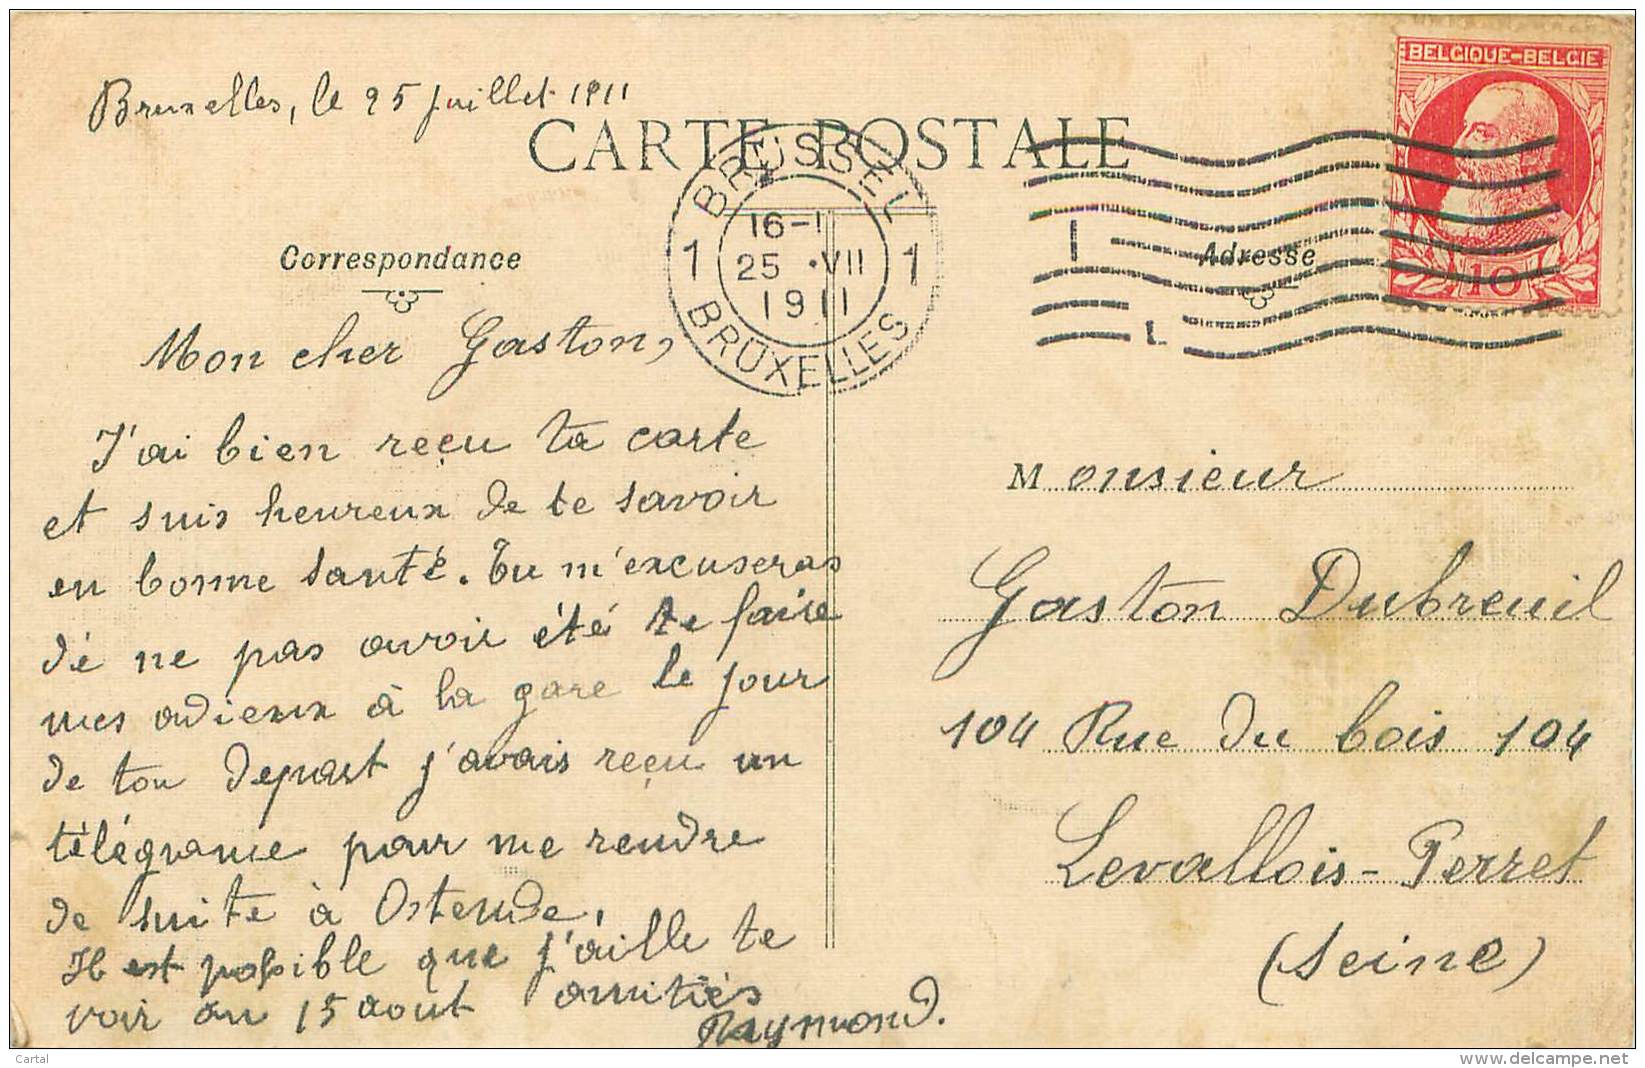 Bruxelles, le 25 juillet 1911
CARTE POSTALE
BELGIQUE-BELGIE
10
BRUSSEL
16-1
1 25 .VII 1
1911
BRUXELLES
Correspondance
Mon cher Gaston,
J'ai bien reçu ta carte
et suis heureux de te savoir
en bonne santé. Tu m'excuseras
dé ne pas avoir été te faire
mes adieux à la gare le jour
de ton depart j'avais reçu un
télégrame pour me rendre
de suite à Ostende.
Il est possible que j'aille te
voir au 15 aout amitiés
Raymond.
Adresse
Monsieur
Gaston Dubreuil
104 Rue du bois 104
Levallois-Perret
(Seine)
Cartal
delcampe.net